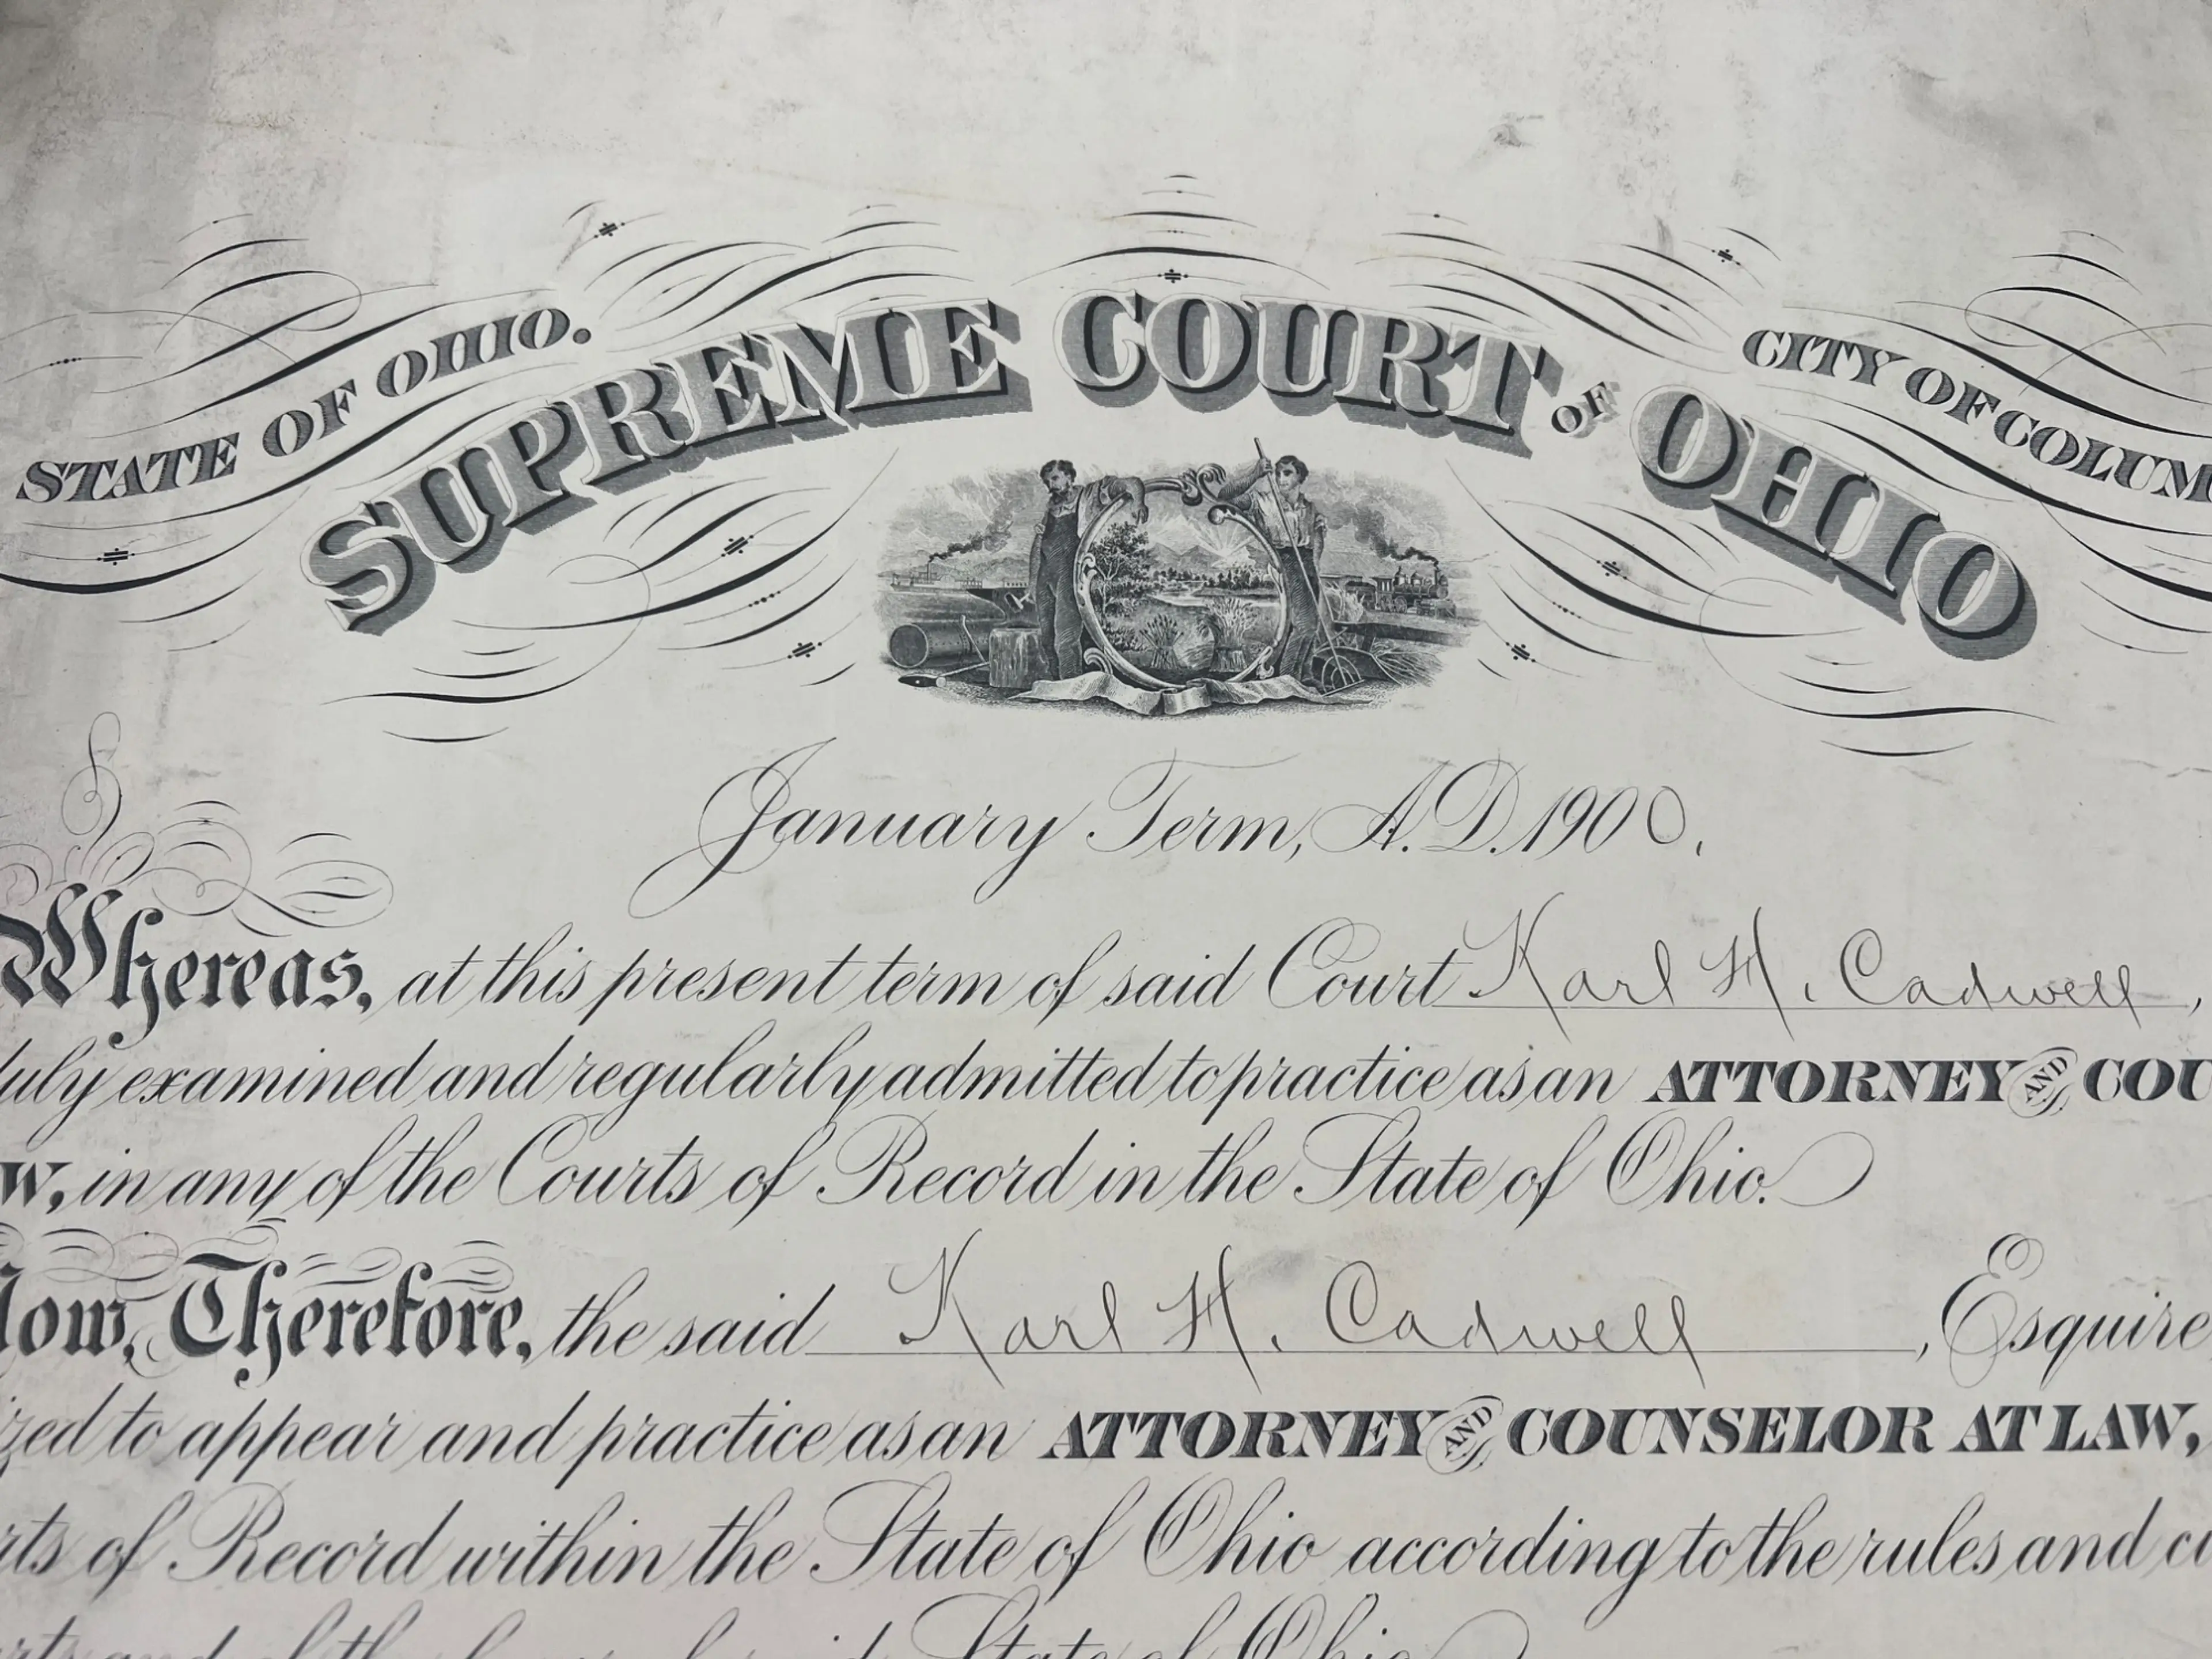 STATE OF OHIO.
SUPREME COURT OF OHIO
CITY OF COLUM
January Term, A.D. 1900.
Whereas, at this present term of said Court Karl H. Cadwell,
duly examined and regularly admitted to practice as an ATTORNEY AND COU
W, in any of the Courts of Record in the State of Ohio.
Now, Therefore, the said Karl H. Cadwell, Esquire
ized to appear and practice as an ATTORNEY AND COUNSELOR AT LAW,
rts of Record within the State of Ohio according to the rules and
State of Ohio